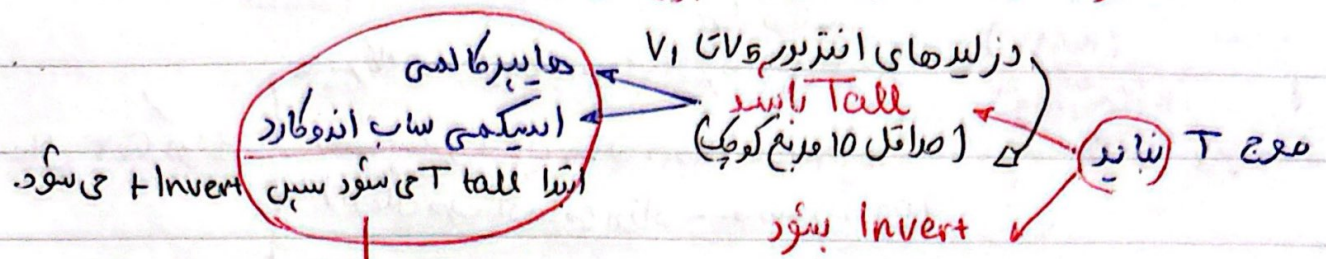 موج T نباید
در لیدهای انتریور V1 تا V5
Tall باشد
(حداقل 10 مربع کوچک)
هایپرکالمی
ایسکمی ساب اندوکارد
ابتدا T tall می شود سپس Invert می شود.
Invert بشود